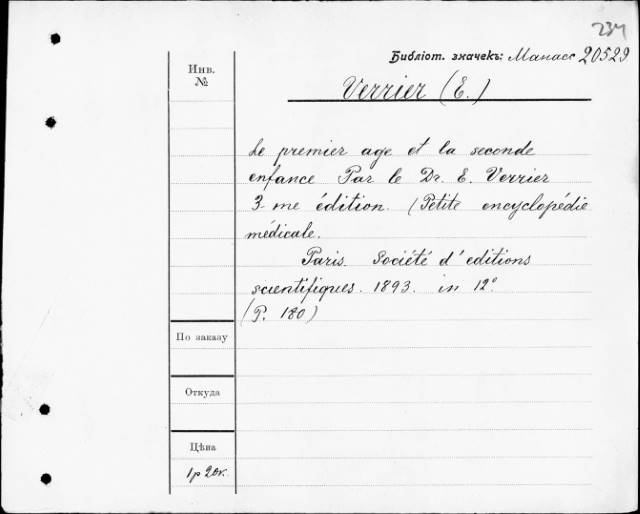 234
Библіот. значекъ: Манасс 20529
Инв.
№
Verrier (E.)
Le premier age et la seconde
enfance Par le Dr. E. Verrier
3-me édition. (Petite encyclopédie
médicale.
Paris. Société d'editions
scientifiques. 1893. in 12°
(P. 180)
По заказу
Откуда
Цѣна
1 р 20 к.